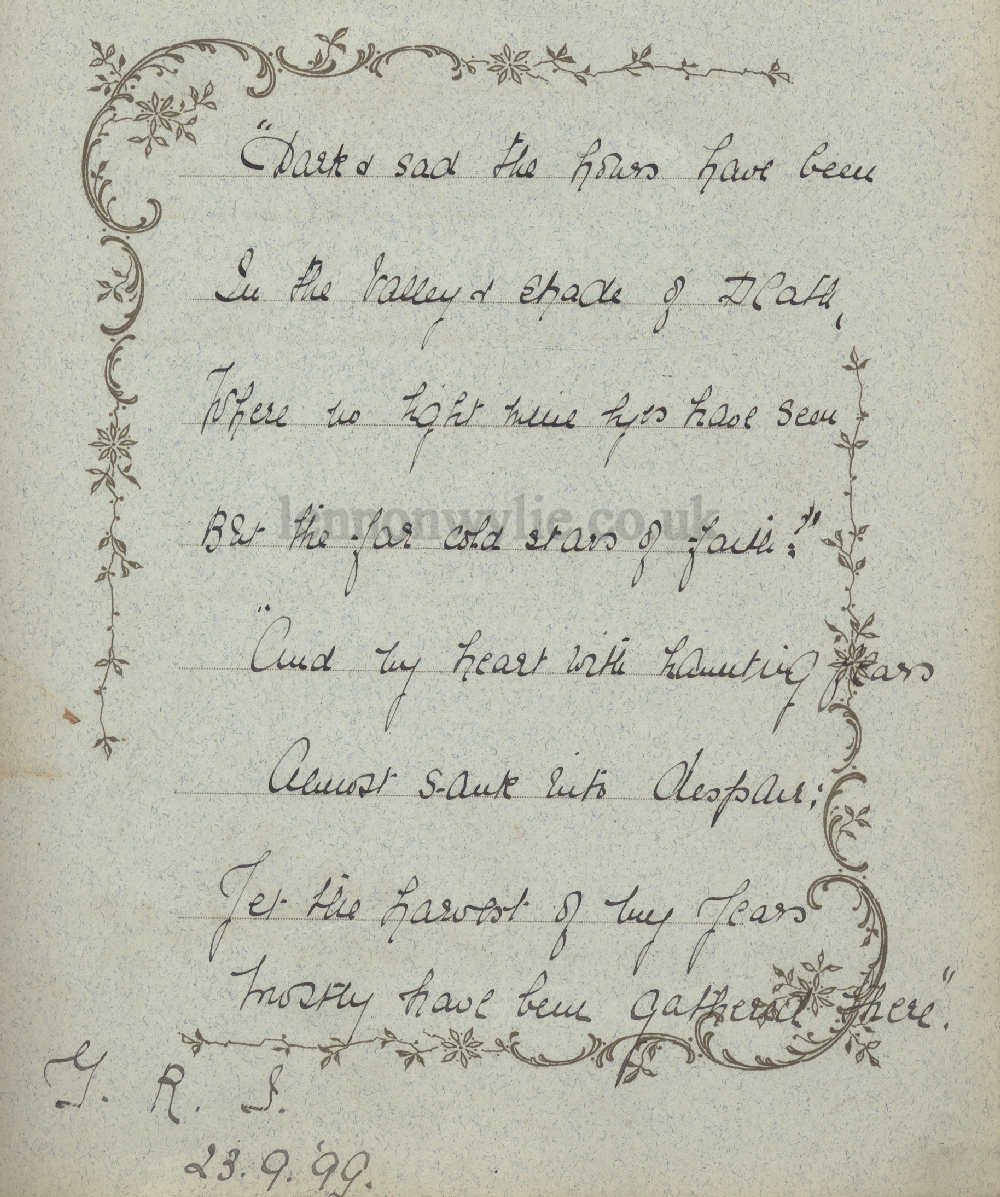 "Dark & sad the hours have been
In the Valley & shade of Death,
Where no light mine eyes have seen
But the far cold stars of faith:"
"And my heart with haunting fears
Almost sank into despair;
Yet the harvest of my Years
Mostly have been gathered there".
R.
23.9.'99.
lennonwylie.co.uk